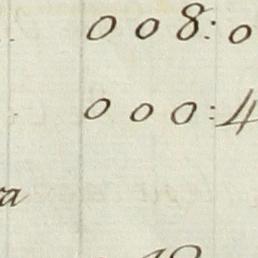 008:0
000:4
ra